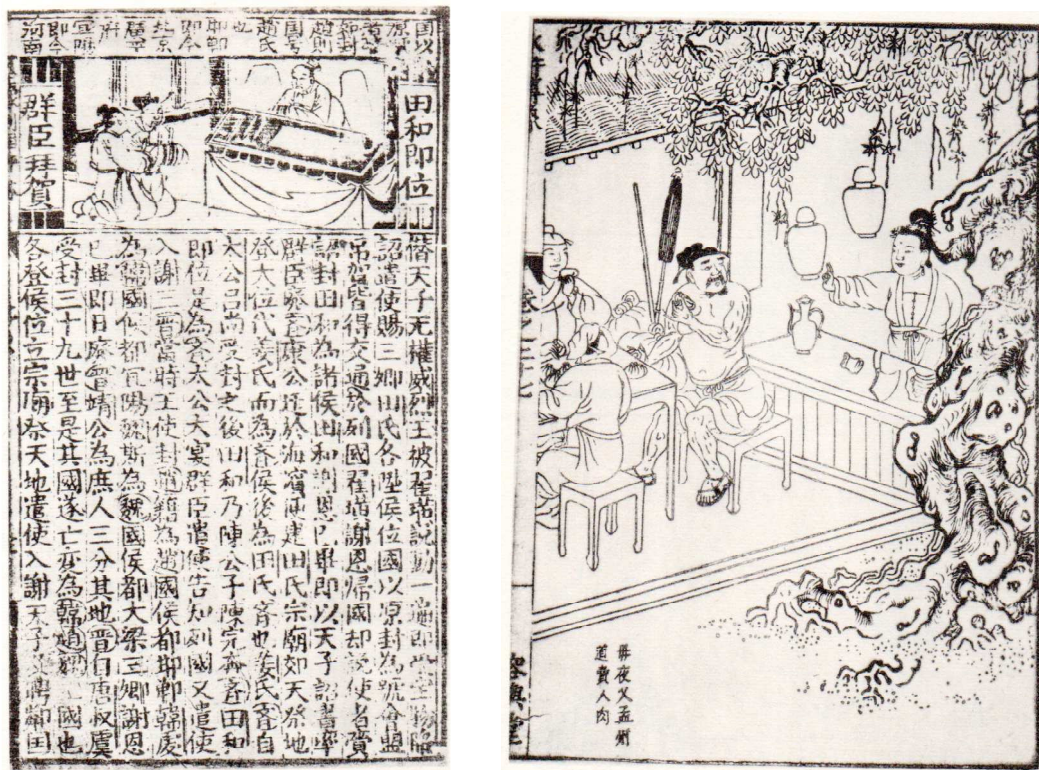 国以
趙則
国号
趙氏
也
邯鄲
即今
北京
廣平
府
宜陽
即今
河南
田和即位
群臣拜賀
僭天子无權威烈王被翟璜說動一即
詔遣使賜三卿田氏各陞侯位國以原封為號會盟
吊賀皆得交通於列國翟璜謝恩歸國却說使者齎
詔封田和為諸侯田和謝恩已畢即以天子詔書率
群臣齊康公遷於海濱建田氏宗廟郊天祭地
登大位代姜氏而為齊侯後為田氏齊也姜氏齊自
太公呂尚受封之後田和乃陳公子陳完田和
即位是為齊太公大宴群臣遣使告知列國又遣使
入謝三晋當時王使封趙籍為趙國侯都邯鄲韓虔
為韓國侯都宜陽魏斯為魏國侯都大梁三卿謝恩
已畢即日廢晋靖公為庶人三分其地晋自唐叔虞
受封三十九世至是其國遂亡亦為韓趙魏三國也
各登侯位立宗廟祭天地遣使入謝天子
母夜叉孟州
道賣人肉
容與堂